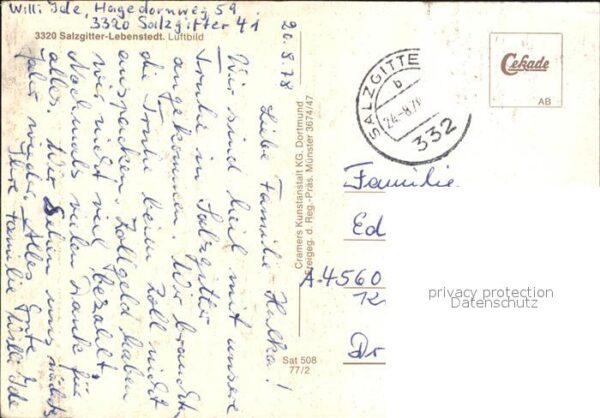 Willi Ide, Hagedornweg 59
3320 Salzgitter 41
3320 Salzgitter-Lebenstedt. Luftbild
20.8.78
Liebe Familie Hulka!
Wir sind heil mit unsere
Truhe in Salzgitter
angekommen. Wir brauchten
die Truhe beim Zoll nicht
auspacken. Zollgeld haben
wir nicht viel bezahlt,
Nochmals vielen Dank für
alles. Wir sehen uns nächstes
Jahr wieder. Alles Gute
Ihre Familie Willi Ide
Cramers Kunstanstalt KG. Dortmund
Freigeg. d. Reg.-Präs. Münster 3674/47
Sat 508
77/2
SALZGITTE
b
332
Cekade
AB
Familie
Ed
A-4560
Dr
privacy protection
Datenschutz